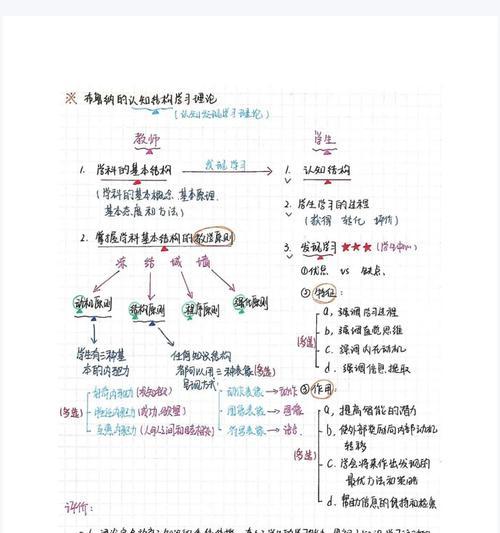 ※ 布鲁纳的认知结构学习理论
(认知发现学习理论)
教师
学生
1. 学科的基本结构
发现学习
1. 认知结构
(学科的基本概念、基本原理、
基本态度和方法)
2. 学生学习的过程
(获得 转化 评价)
2. 掌握学科基本结构的教学原则
3. 发现学习 ★★★ (学生中心)
①优点 vs 缺点
动机原则
结构原则
程序原则
强化原则
② 特征:
a. 强调学习过程
b. 强调直觉思维
c. 强调内在动机
d. 强调信息提取
(多选)
学生有三种基
本的内驱力
任何知识结构
都可以用三种表象(多选)
呈现方式:
(多选)
好奇内驱力(求知欲)
胜任内驱力(成功欲望)
互惠内驱力(人与人之间和睦相处)
动作表象→动作
图像表象→图像
符号表象→语言
③ 作用:
(多选)
a. 提高智能的潜力
b. 使外部奖励向内部动机
转移
c. 学会将来作出发现的
最优方法和策略
d. 帮助信息的保持和检索
评价: